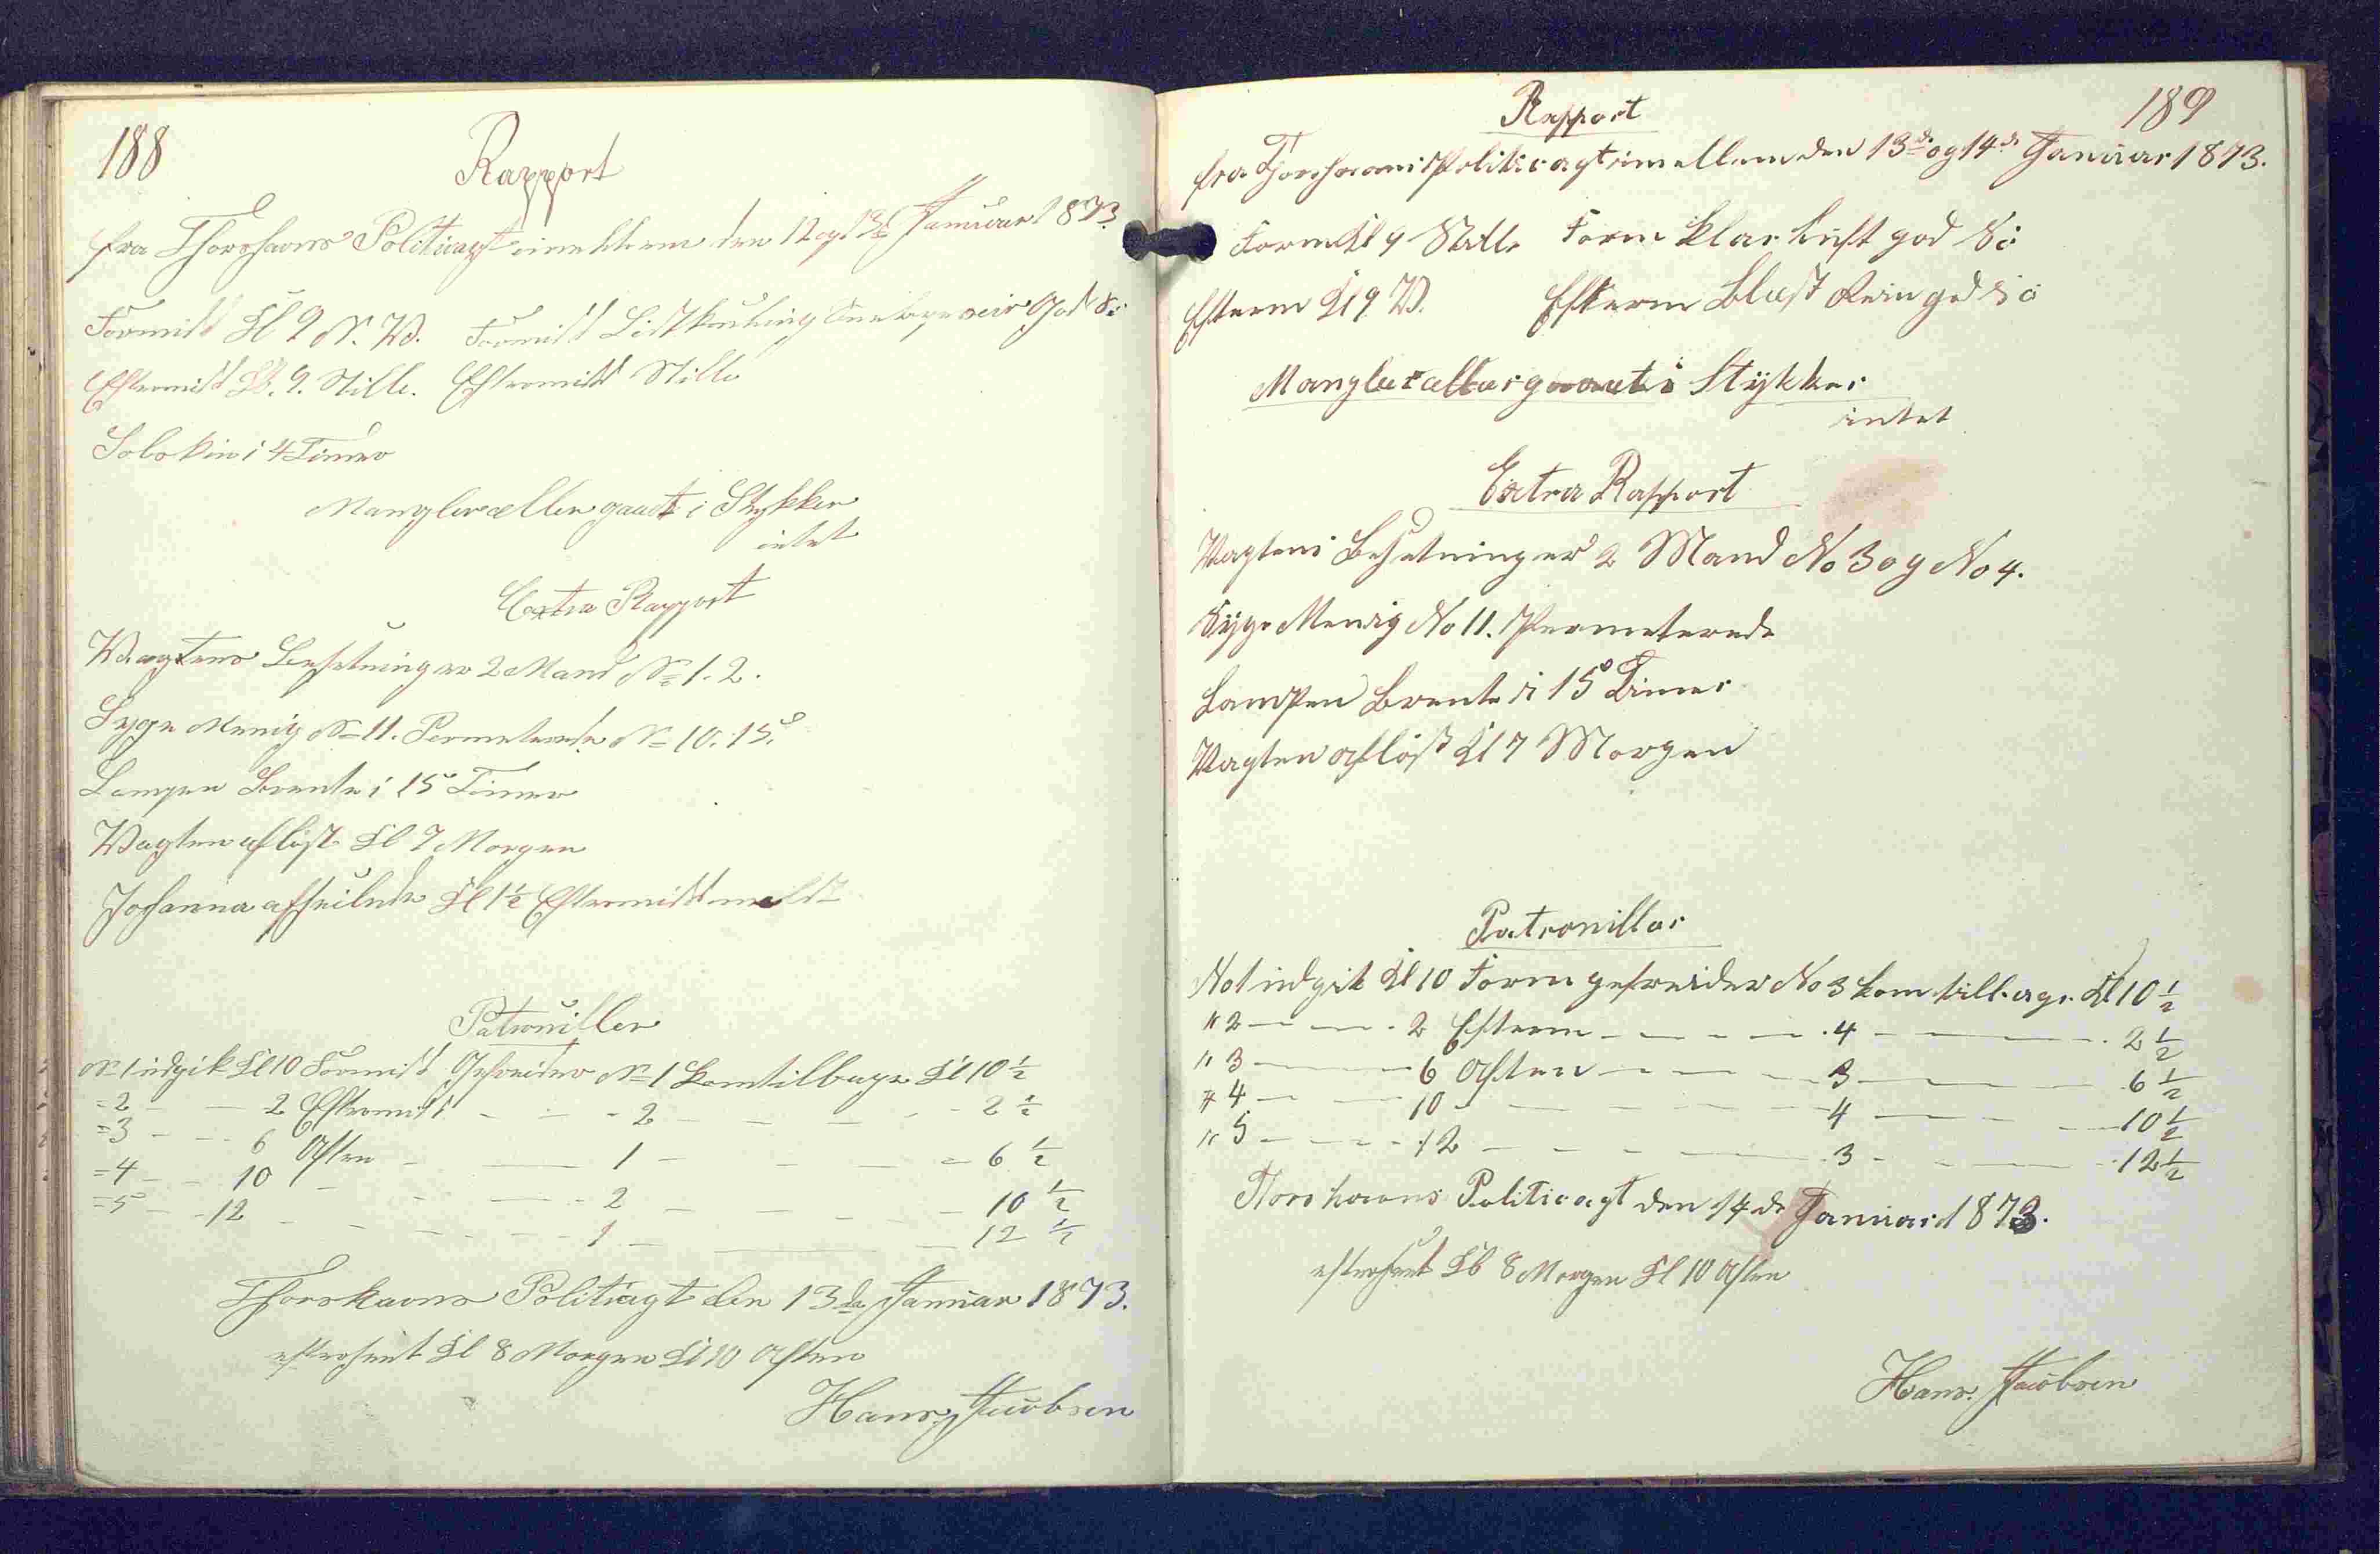 188
Rapport
fra Thorshavns Politivagt imellem den 12 og 13de Januar 1873
Formidd Kl 9 N. W. Formidd Lidt kuling god Sö
Eftermidd Kl. 9. Stille. Eftermidd Stille
Solskin i 4 Timer
Mangler eller gaaet i Stykker
intet
Extra Rapport
Wagtens Besetning er 2 Mand No 1. 2.
Syge Menig No 11. Permeterede No 10. 15.
Lampen Brente i 15 Timer
Wagten aflöst Kl 7 Morgen
Johanna afseilede Kl 1½ Eftermidd
Patrouiller
No 1 indgik Kl 10 Formidd Gefreider No 1 kom tilbage Kl 10 ½
= 2 — — 2 Eftermidd — — - 2 — — — - 2 ½
= 3 — — 6 Aften — — 1 — — — = 6 ½
= 4 — — 10 — — — 2 — — — 10 ½
= 5 — - 12 — — — 1 — — — 12 ½
Thorshavns Politivagt den 13de Januar 1873.
efterseet Kl 8 Morgen Kl 10 Aften
Hans. Jacobsen
189
Rapport
fra Thorshavns Politivagt imellem den 13de og 14de Januar 1873.
Form Kl 9 Stille Form klar Luft god Sö
Efterm Kl 9 W. Efterm Blæst Rein god Sö
Mangler eller gaaet i Stykker
intet
Extra Rapport
Wagtens Besetning er 2 Mand No 3 og No 4.
Syge Menig No 11. Permeterede
Lampen Brente i 15 Timer
Wagten aflöst Kl 7 Morgen
Patrouiller
No 1 indgik Kl 10 Form gefreider No 3 kom tilbage Kl 10 ½
" 2 — — - 2 Efterm — — — . 4 — — . 2 ½
" 3 — — 6 Aften — — 3 — — 6 ½
" 4 — — 10 — — — 4 — — 10 ½
" 5 — — - 12 — — — 3 - — — 12 ½
Thorshavns Politivagt den 14de Januar 1873.
efterseet Kl 8 Morgen Kl 10 Aften
Hans. Jacobsen